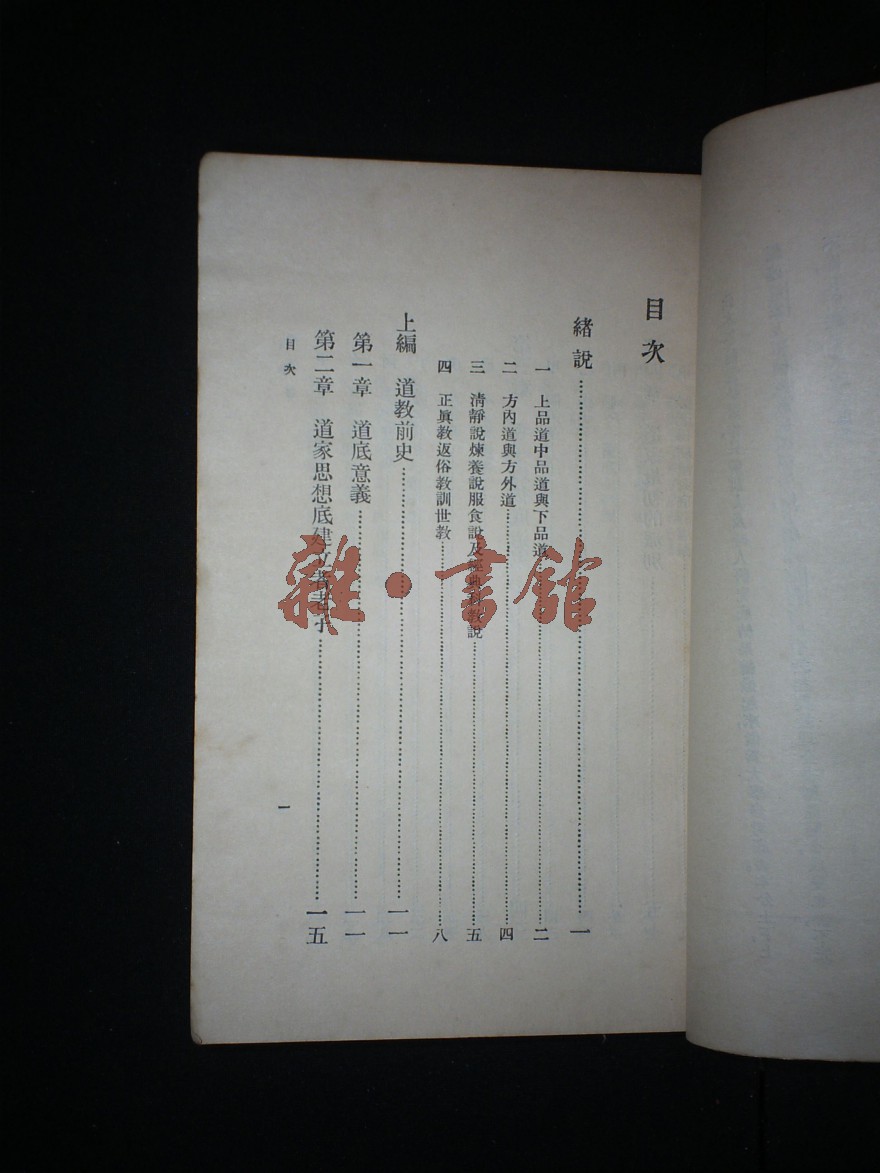 目次
緒說……一
一 上品道中品道與下品道……二
二 方內道與方外道……四
三 淸靜說煉養說服食說及經典科敎說……五
四 正眞敎返俗敎訓世敎……八
上編 道敎前史……一一
第一章 道底意義……一一
第二章 道家思想底建立者老子……一五
目次
一
雜·書館